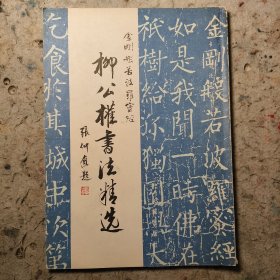 金剛般若波羅蜜經
如是我聞一時佛在
祇樹給孤獨園
金剛般若波羅蜜經
柳公權書法精选
張仲愈題
乞食於其城中次第